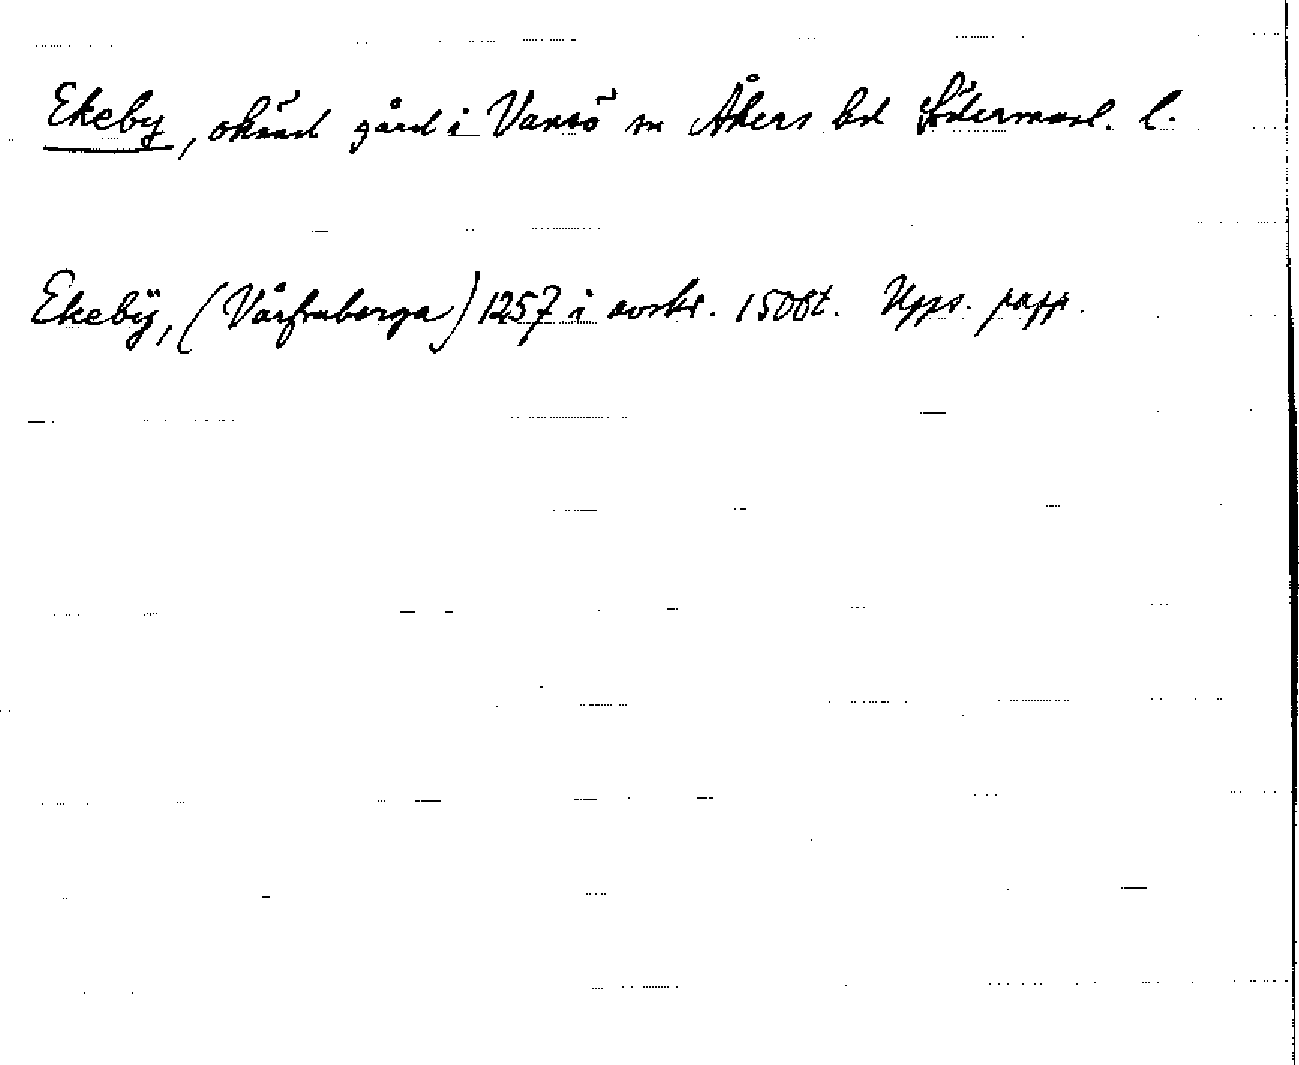 Ekeby, okänd gård i Vansö sn Åkers hd Södermanl. l.
Ekebÿ, (Vårfruberga) 1257 i avskr. 1500t. Upps. papp.